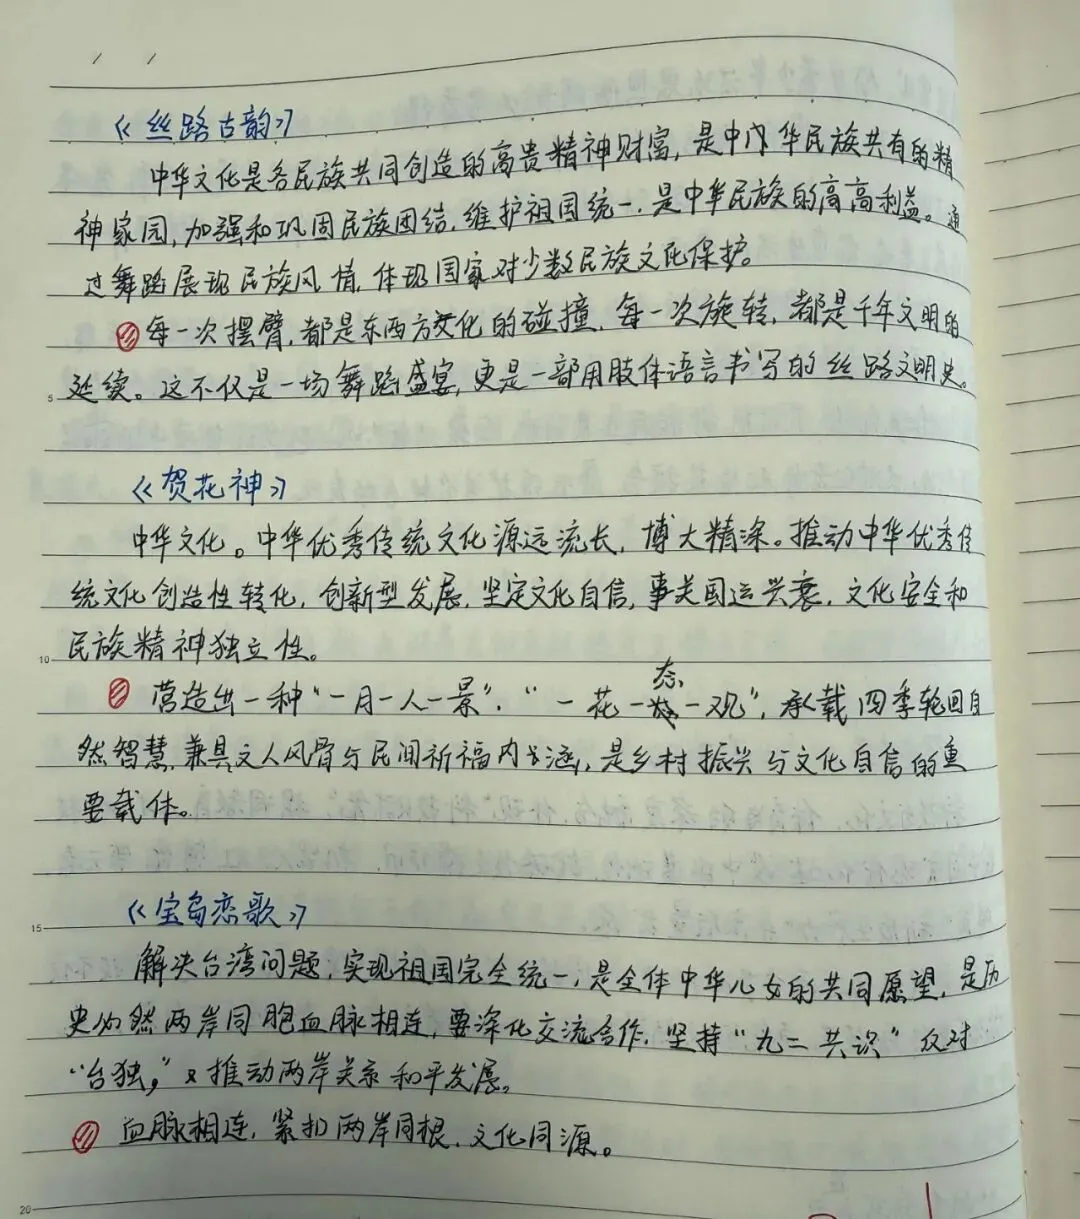 《丝路古韵》
中华文化是各民族共同创造的高贵精神财富,是中华民族共有的精
神家园,加强和巩固民族团结,维护祖国统一,是中华民族的高高利益。通
过舞蹈展现民族风情,体现国家对少数民族文化保护。
每一次摆臂,都是东西方文化的碰撞,每一次旋转,都是千年文明的
延续。这不仅是一场舞蹈盛宴,更是一部用肢体语言书写的丝路文明史。
5
《贺花神》
中华文化。中华优秀传统文化源远流长,博大精深。推动中华优秀传
统文化创造性转化,创新型发展,坚定文化自信,事关国运兴衰,文化安全和
民族精神独立性。
10
营造出一种“一月一人一景”,“一花一态一观”,承载四季轮回自
然智慧,兼具文人风骨与民间祈福内涵,是乡村振兴与文化自信的重
要载体。
《宝岛恋歌》
15
解决台湾问题,实现祖国完全统一,是全体中华儿女的共同愿望,是历
史必然两岸同胞血脉相连,要深化交流合作,坚持“九二共识”反对
“台独,”推动两岸关系和平发展。
血脉相连,紧扣两岸同根,文化同源。
20